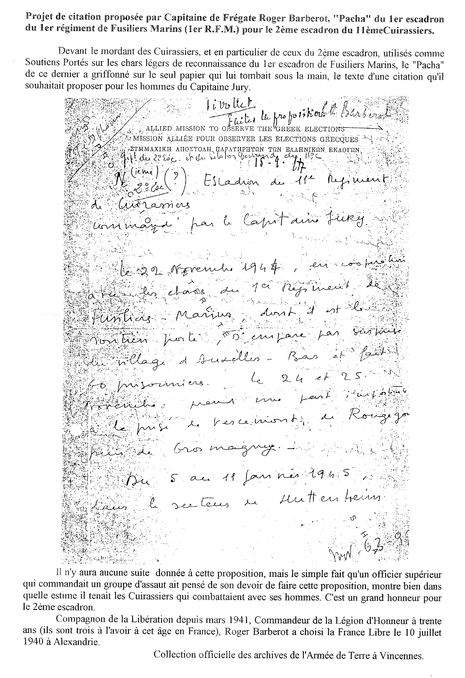 Projet de citation proposée par Capitaine de Frégate Roger Barberot, "Pacha" du 1er escadron
du 1er régiment de Fusiliers Marins (1er R.F.M.) pour le 2ème escadron du 11èmeCuirassiers.
Devant le mordant des Cuirassiers, et en particulier de ceux du 2ème escadron, utilisés comme
Soutiens Portés sur les chars légers de reconnaissance du 1er escadron de Fusiliers Marins, le "Pacha"
de ce dernier a griffonné sur le seul papier qui lui tombait sous la main, le texte d'une citation qu'il
souhaitait proposer pour les hommes du Capitaine Jury.
Faites la proposition Barberot
ALLIED MISSION TO OBSERVE THE GREEK ELECTIONS
MISSION ALLIÉE POUR OBSERVER LES ÉLECTIONS GRECQUES
ΣΥΜΜΑΧΙΚΗ ΑΠΟΣΤΟΛΗ ΠΑΡΑΤΗΡΗΤΩΝ ΤΩΝ ΕΛΛΗΝΙΚΩΝ ΕΚΛΟΓΩΝ
(?) Escadron du 11e Regiment
de Cuirassiers
commandé par le Capitaine Jury.
Le 22 Novembre 1944, en coopération
avec les chars du 1er Regiment de
Fusiliers-Marins, dont il est le
soutien porté, s'empare par surprise
du village d'Auxelles-Bas et fait
60 prisonniers. Le 24 et 25
Novembre prend une part importante
à la prise de Vescemont, de Rougego
puis de Gromagny.
Du 5 au 11 Janvier 1945
dans le secteur de Huttenheim
Il n'y aura aucune suite donnée à cette proposition, mais le simple fait qu'un officier supérieur
qui commandait un groupe d'assaut ait pensé de son devoir de faire cette proposition, montre bien dans
quelle estime il tenait les Cuirassiers qui combattaient avec ses hommes. C'est un grand honneur pour
le 2ème escadron.
Compagnon de la Libération depuis mars 1941, Commandeur de la Légion d'Honneur à trente
ans (ils sont trois à l'avoir à cet âge en France), Roger Barberot a choisi la France Libre le 10 juillet
1940 à Alexandrie.
Collection officielle des archives de l'Armée de Terre à Vincennes.